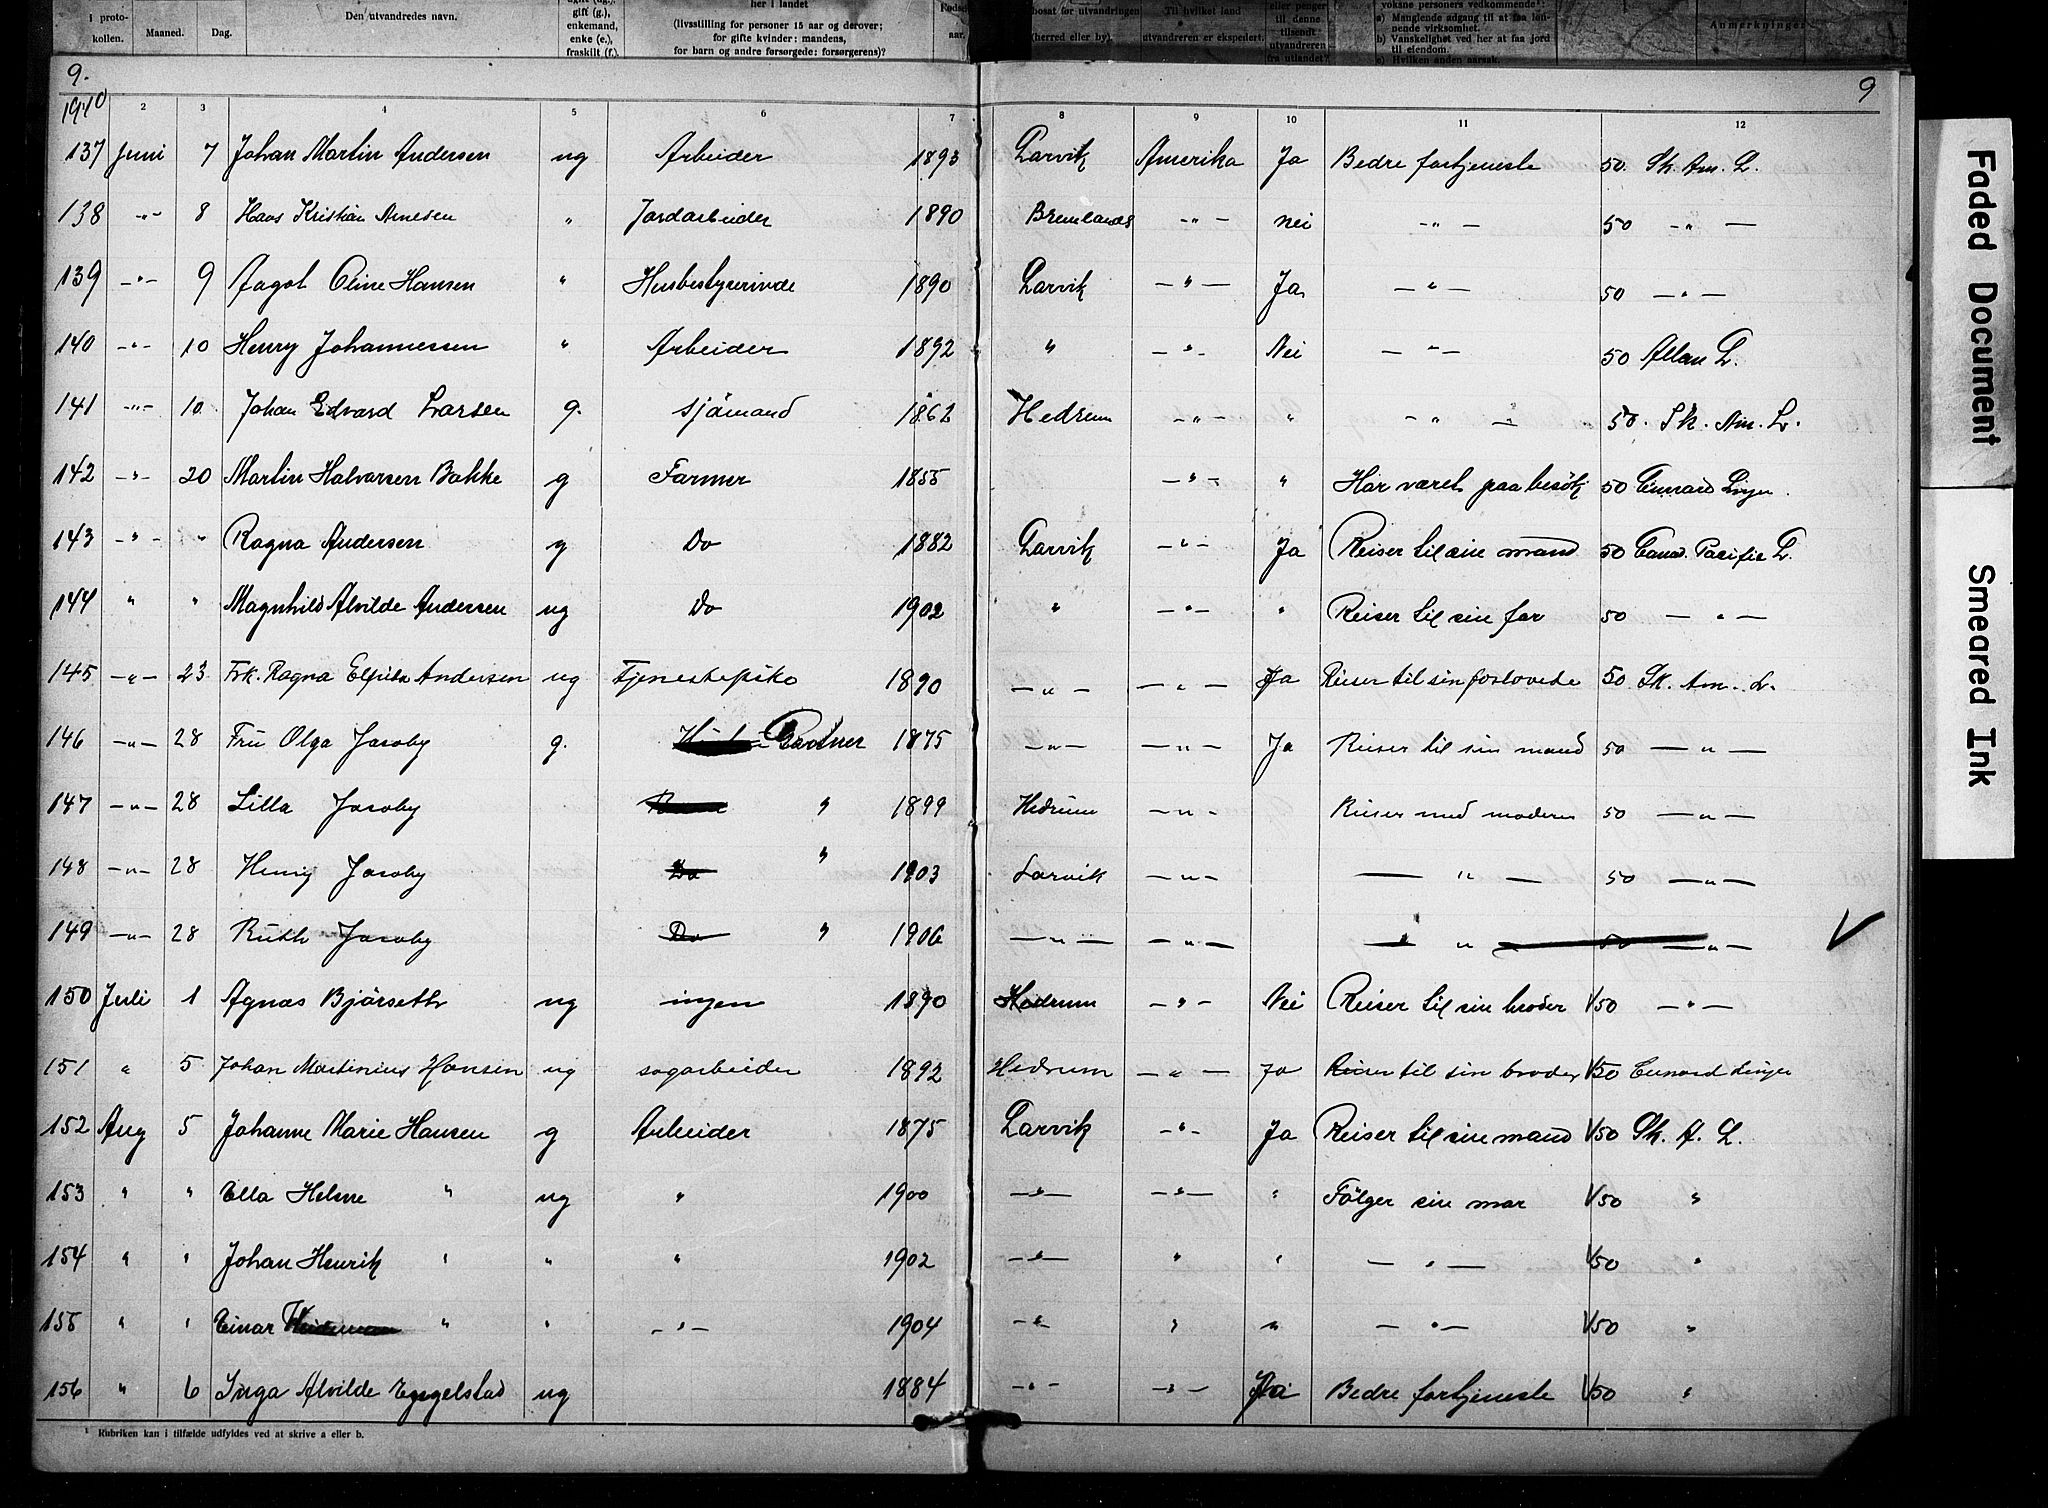 i proto-
kollen.
Maaned.
Dag.
Den utvandredes navn.
gift (g.),
enkemand,
enke (e.),
fraskilt (f.).
her i landet
(livsstilling for personer 15 aar og derover;
for gifte kvinder: mandens,
for barn og andre forsørgede: forsørgerens)?
aar.
bosat før utvandringen
(herred eller by).
Til hvilket land
utvandreren er ekspedert.
eller penger
til denne
tilsendt
utvandreren
fra utlandet?
voksne personers vedkommende¹:
a) Manglende adgang til at faa løn-
nende virksomhet.
b) Vanskelighet ved her at faa jord
til eiendom.
c) Hvilken anden aarsak.
Anmerkninger
9. 9
1910 2 3 4 5 6 7 8 9 10 11 12
137 Juni 7 Johan Martin Andersen ug Arbeider 1893 Larvik Amerika Ja Bedre fortjeneste 50. Sk. Am. L.
138 -"- 8 Hans Kristian Arnesen " Jordarbeider 1890 Brunlanæs -"- nei -"- 50 -"-
139 -"- 9 Aagot Oline Hansen " Husbestyrerinde 1890 Larvik -"- Ja -"- 50 -"-
140 -"- 10 Henry Johannessen " Arbeider 1892 " -"- Nei -"- 50 Allan L.
141 -"- 10 Johan Edvard Larsen g. sjömand 1862 Hedrum -"- " -"- 50. Sk. Am. L.
142 -"- 20 Martin Halvorsen Bakke g Farmer 1855 -"- " Har været paa besök 50 Cunard Linjen.
143 -"- " Ragna Andersen g Do 1882 Larvik -"- Ja Reiser til sin mand 50 Canad. Pacific L.
144 " " Magnhild Alvilde Andersen ug Do 1902 " -"- " Reiser til sin far 50 -"-
145 -"- 23 Frk. Ragna Elfrida Andersen ug Tjenestepike 1890 -"- -"- Ja Reiser til sin forlovede 50. Sk. Am. L.
146 -"- 28 Fru Olga Jacoby g. Gartner 1875 -"- -"- Ja Reiser til sin mand 50 -"-
147 -"- 28 Lilla Jacoby " 1899 Hedrum -"- Reiser med moderen 50 -"-
148 -"- 28 Henry Jacoby Do " 1903 Larvik -"- -"- 50 -"-
149 -"- 28 Ruth Jacoby Do " 1906 -"- -"- -"- 50 -"- V
150 Juli 1 Agnæs Bjørseth ug ingen 1890 Hedrum -"- Nei Reiser til sin broder 1/50 -"-
151 " 5 Johan Martinius Hansen ug sagarbeider 1892 Hedrum -"- Ja Reiser til sin broder 1/50 Cunard Linjen
152 Aug 5 Johanne Marie Hansen g Arbeider 1875 Larvik -"- Ja Reiser til sin mand 1/50 Sk. A. L.
153 " " Ella Helene " ug " 1900 -"- -"- " Følger sin mor 1/50 "
154 " " Johan Henrik " " " 1902 -"- " " -"- 1/50 "
155 " " Einar " " -"- 1904 -"- " " -"- 1/50 "
156 " 6 Inga Alvilde Engelstad ug 1884 -"- -"- Ja Bedre fortjeneste 1/50 "
¹ Rubriken kan i tilfælde udfyldes ved at skrive a eller b.
Faded Document
Smeared Ink